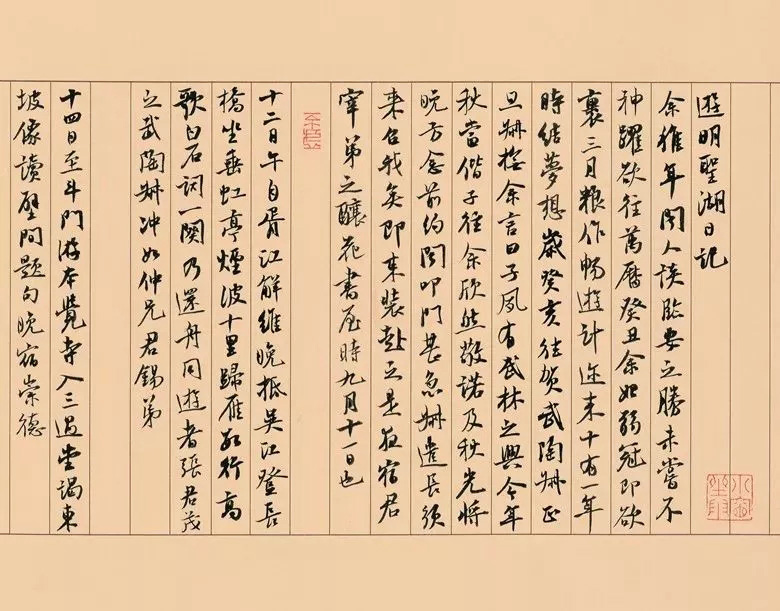 遊明聖湖日記
余稚年聞人談臨安之勝未嘗不
神躍欲往萬曆癸丑余始弱冠即欲
裹三月糧作暢遊計邇來十有一年
時結夢想歲癸亥往賀武陶姊正
旦姊余言曰子夙有武林之興今年
秋當偕子往余欣然敬諾及秋光將
晚方念前約聞叩門甚急姊遣長須
來召我矣即束裝赴之是夜宿君
宰弟之釀花書屋時九月十一日也
十二日午自胥江解維晚抵吳江登長
橋坐垂虹亭煙波十里歸雁數行高
歌白石詞一闋乃還舟同遊者張君茂
之武陶姊沖如仲兄君錫弟
十四日至斗門游本覺寺入三過堂謁東
坡像讀壁間題句晚宿崇德